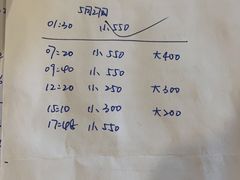 5月27日
01:30 小550
07:20 小550 大400
09:40 小550
12:20 小250 大300
15:10 小300 大200
17:48 小550